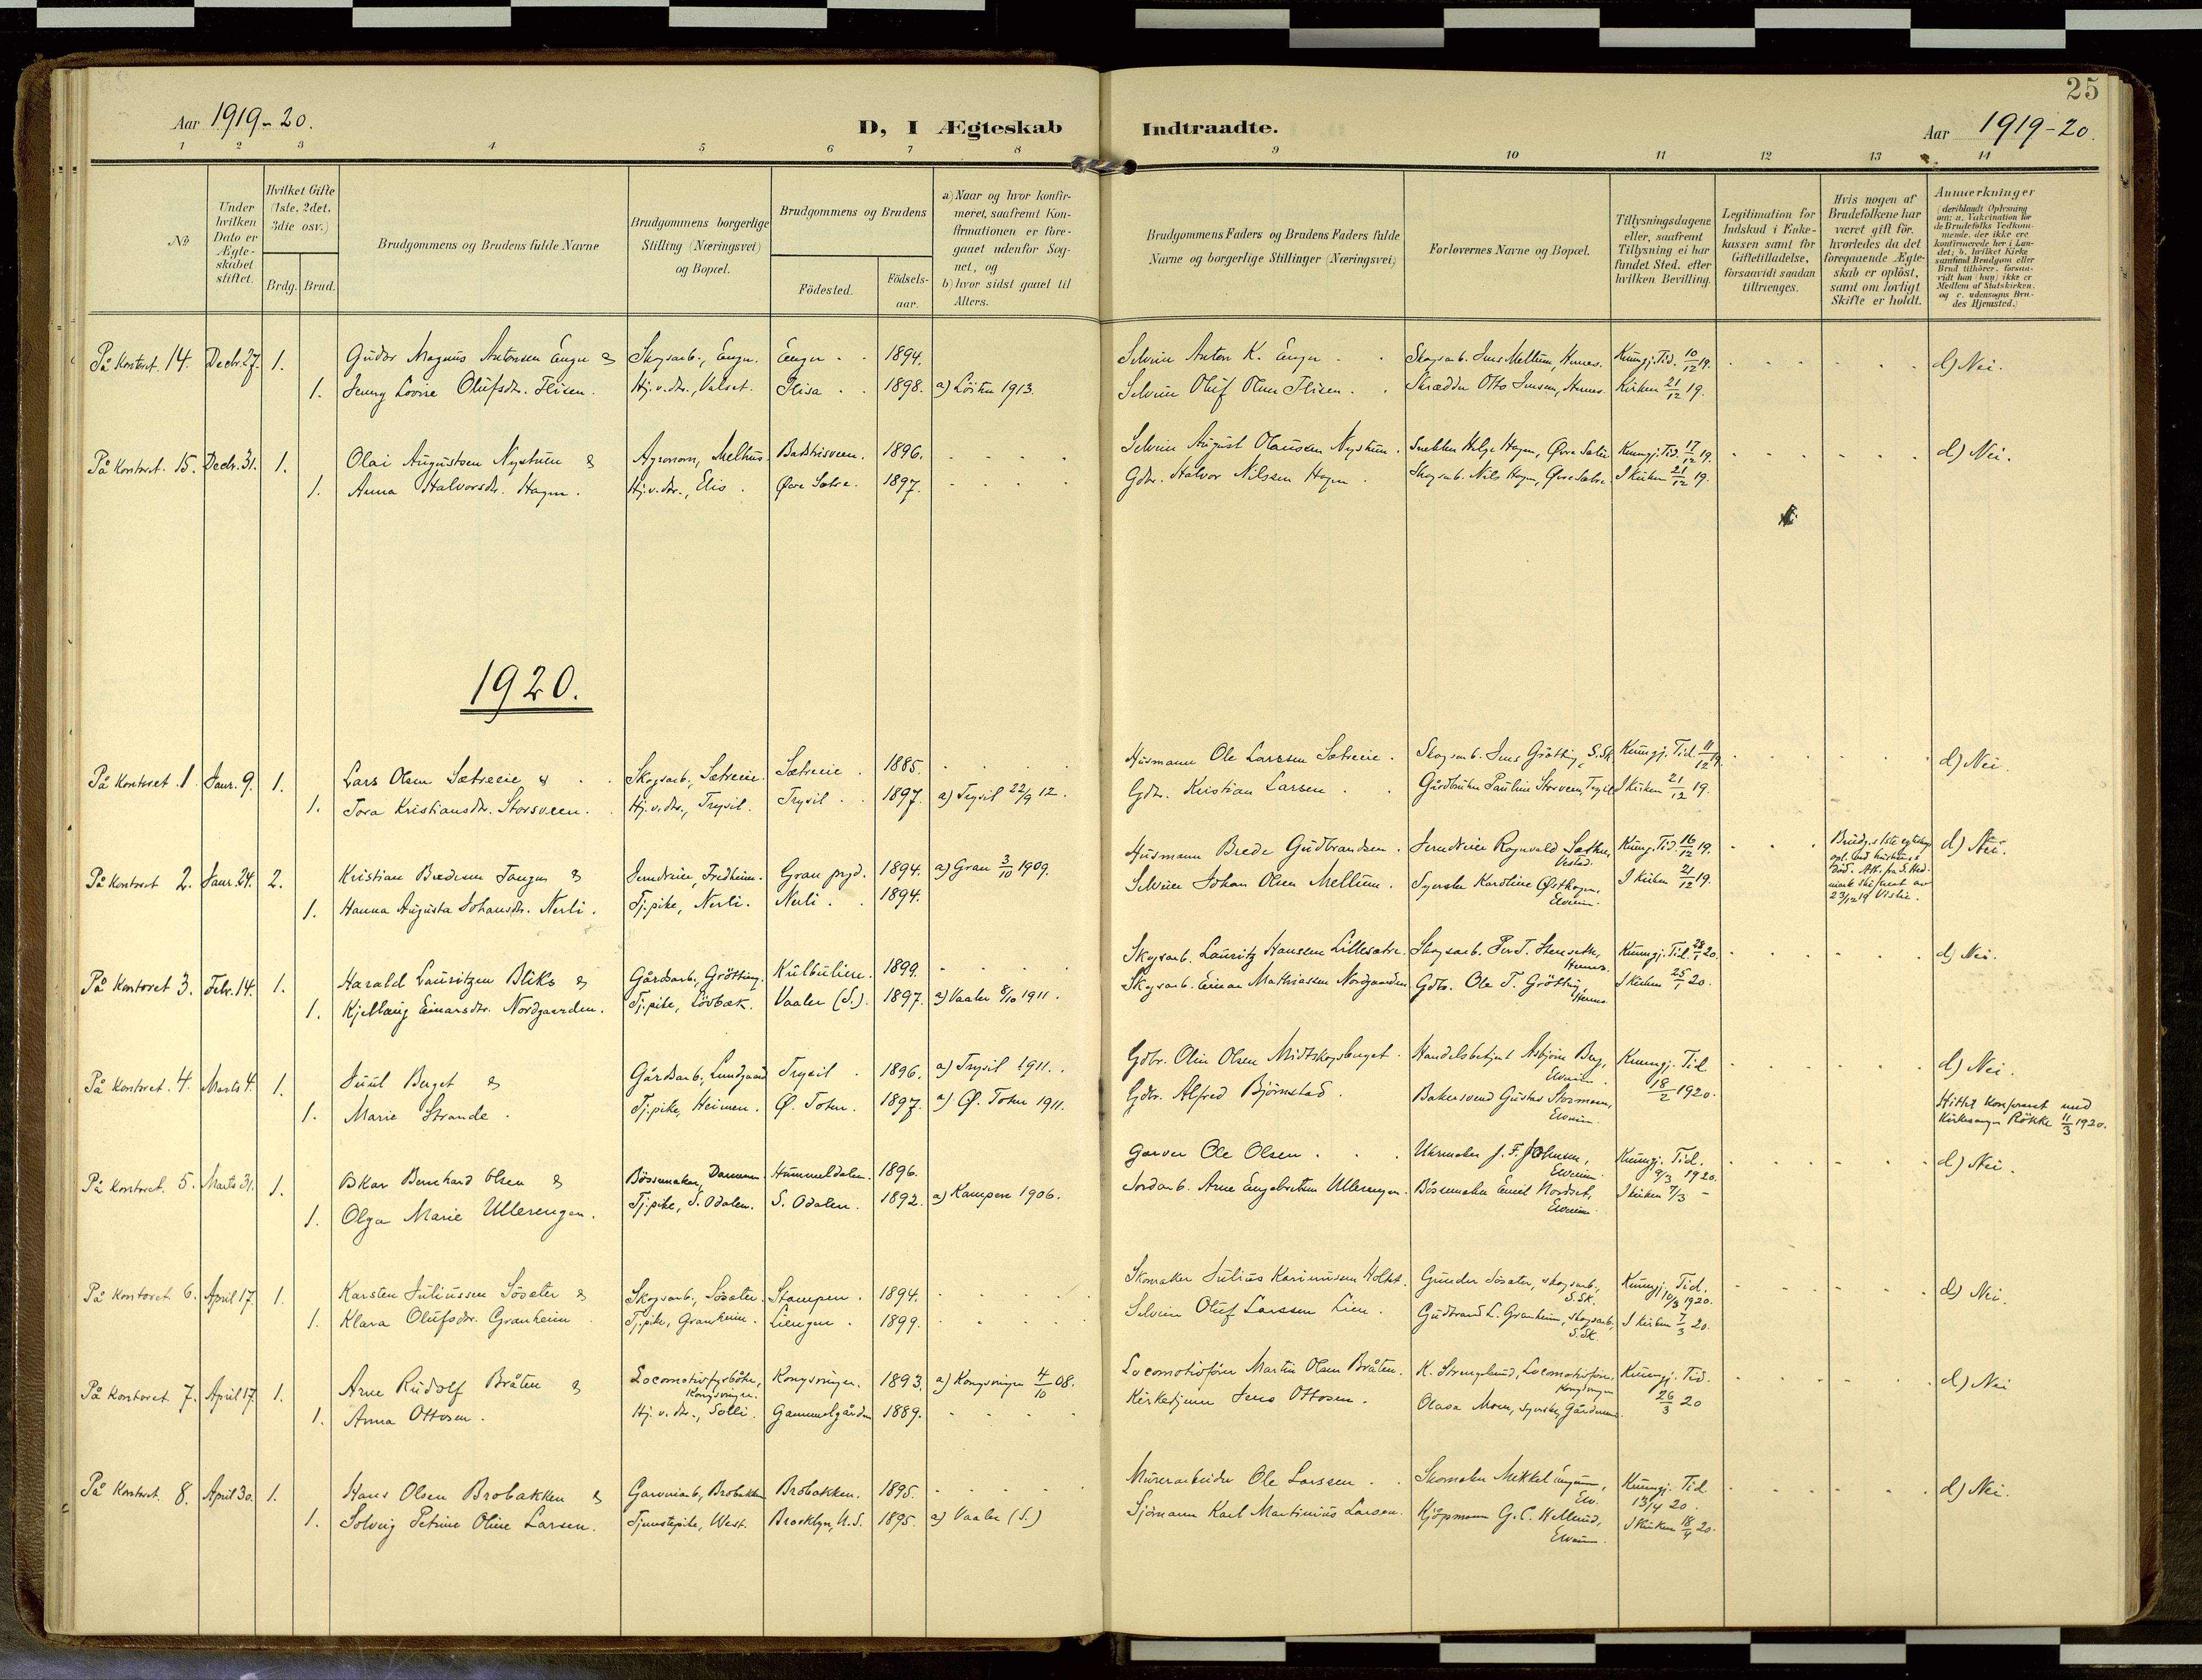 25
Aar 1919-20.
D, I Ægteskab Indtraadte.
Aar 1919-20.
1 2 3 4 5 6 7 8 9 10 11 12 13 14
No
Under hvilken Dato er Ægteskabet stiftet.
Hvilket Gifte (1ste, 2det, 3die osv.)
Brdg. Brud.
Brudgommens og Brudens fulde Navne
Brudgommens borgerlige Stilling (Næringsvei) og Bopæl.
Brudgommens og Brudens
Födested.
Födsels-aar.
a) Naar og hvor konfirmeret, saafremt Konfirmationen er foregaaet udenfor Sognet, og
b) hvor sidst gaaet til Alters.
Brudgommens Faders og Brudens Faders fulde Navne og borgerlige Stillinger (Næringsvei)
Forlovernes Navne og Bopæl.
Tillysningsdagene eller, saafremt Tillysning ei har fundet Sted, efter hvilken Bevilling.
Legitimation for Indskud i Enkekassen samt for Giftetilladelse, forsaavidt saadan tiltrænges.
Hvis nogen af Brudefolkene har været gift før, hvorledes da det foregaaende Ægteskab er oplöst, samt om lovligt Skifte er holdt.
Anmærkninger
(deriblandt Oplysning om: a. Vakcination for de Brudefolks Vedkommende, der ikke ere konfirmerede her i Landet; b. hvilket Kirkesamfund Brudgom eller Brud tilhörer, forsaavidt han (hun) ikke er Medlem af Statskirken, og c. udensogns Brudes Hjemsted.)
På Kontoret. 14. Decbr. 27. 1. Gudor Magnus Antonsen Enger & Skogsarb., Enger. Enger 1894. Selveier Anton K. Enger Skogsarb. Jens Mellum, Hernes. Kunngj. Tid. 10/12 19. d) Nei.
1. Jenny Lovise Olufsdtr. Flisen. Hj.v.dtr., Valset. Flisa 1898. a) Löiten 1913. Selveier Oluf Olsen Flisen. Skrædder Otto Jensen, Hernes. Kirken 21/12 19.
På Kontoret. 15. Decbr. 31. 1. Olai Augustsen Nystuen & Agronom, Melhus. 1896. Selveier August Olausen Nystuen. Snekker Helge Hagen, Øvre Sætre Kunngj. Tid. 17/12 19. d) Nei.
1. Anna Halvorsdtr. Hagen. Hj.v.dtr., Elis. Øvre Sætre. 1897. Gdbr. Halvor Nilssen Hagen. Skogsarb. Nils Hagen, Øvre Sætre. I Kirken 21/12 19.
1920.
På Kontoret. 1. Janr. 9. 1. Lars Olsen Sætreeie & Skogsarb., Sætreeie. Sætreeie. 1885. Husmann Ole Larssen Sætreeie. Skogsarb. Jens Grötting, S.Sk. Kunngj. Tid. 11/12 19. d) Nei.
1. Tora Kristiansdtr. Storsveen. Hj.v.dtr., Trysil. Trysil 1897. a) Trysil 22/9 12. Gdbr. Kristian Larsen Gårdbruker Paulin Storveen, Trysil I Kirken 21/12 19.
På Kontoret 2. Janr. 24. 2. Kristian Bredesen Tangen & Jerndreier, Fredheim. Gran prgd. 1894. a) Gran 3/10 1909. Husmann Brede Gudbrandsen. Jerndreier Ragnvald Sæther, Vestad. Kunng. Tid. 16/12 19. d) Nei.
1. Hanna Augusta Johansdtr. Nerli. Tj.pike, Nerli. Nerli. 1894. Selveier Johan Olsen Mellum. Syerske Karoline Østhagen, Elverum. I Kirken 21/12 19.
På Kontoret 3. Febr. 14. 1. Harald Lauritzen Bliks & Gårdsarb., Grötting. Kulbulien. 1899. Skogsarb. Lauritz Hansen Lillesætre. Skogsarb. Ferd. Stenseth, Hernes. Kunngj. Tid. 28/1 20. d) Nei.
1. Kjellaug Einarsdtr. Nordgaarden. Tj.pike, Lövbæk. Vaaler (S.). 1897. a) Vaaler 8/10 1911. Skogsarb. Einar Mathiassen Nordgaarden. Gdbr. Ole T. Grötting, Hernes I Kirken 25/1 20.
På Kontoret. 4. Marts 4. 1. Juul Berget & Gårdsarb., Lundgaard Trysil 1896. a) Trysil 1911. Gdbr. Olin Olsen Midtskogsberget. Handelsbetjent Asbjörn Berg, Elverum. Kunngj. Tid 18/2 1920. d) Nei.
1. Marie Strande. Tj.pike, Heimen. Ø. Toten. 1897. a) Ø. Toten 1911. Gdbr. Alfred Björnstad. Bakersvend Gustav Stosmoen, Elverum.
Hittil konfereret med Kirkesanger Rökke 11/3 1920.
På Kontoret. 5. Marts 31. 1. Oskar Bernhard Olsen & Bössemaker, Hummeldalen. 1896. Garver Ole Olsen Uhrmaker J. F. Johnsen, Elverum. Kunngj. Tid. 9/3 1920. d) Nei.
1. Olga Marie Ullerengen. Tj.pike, S. Odalen. S. Odalen. 1892. a) Kampen 1906. Jordarb. Arne Engebretsen Ullerengen. Bössemaker Emil Nordset, Elverum. I kirken 7/3 -
På Kontoret 6. April 17. 1. Karsten Juliussen Søsæter & Skogsarb., Søsæter. Stampen. 1894. Skomaker Julius Karinusen Holtet. Gunder Søsæter, skogsarb., S.Sk. Kunngj. Tid. 10/3 1920. d) Nei.
1. Klara Olufsdtr. Granheim Tj.pike, Granheim. Liengen. 1899. Selveier Oluf Larssen Lien. Gudbrand L. Granheim, skogsarb., S.Sk. I kirken 7/3 20.
På Kontoret 7. April 17. 1. Arne Rudolf Bråten & Locomotivfyrböter, Kongsvinger. Kongsvinger. 1893. a) Kongsvinger 4/10 08. Locomotivförer Martin Olsen Bråten. K. Strengelsrud, Locomotivförer, Kongsvinger Kunngj. Tid. 26/3 20 d) Nei
1. Anna Ottosen. Hj.v.dtr., Solli. Gammelgården 1889. Kirketjener Jens Ottosen. Olava Moen, syerske,
På Kontoret. 8. April 30. 1. Hans Olsen Brobakken & Garveriarb., Brobakken Brobakken. 1895. Murerarbeider Ole Larssen Skomaker Mikkel Elv. Kunngj. Tid. 13/4 20. d) Nei.
1. Solveig Petrine Oline Larsen. Tjenestepike, West. Brooklyn, U.S. 1895. a) Vaaler (S.) Sjömann Karl Martinius Larsen. Kjöpmann G. C. Hellund, Elverum. I Kirken 18/4 20.